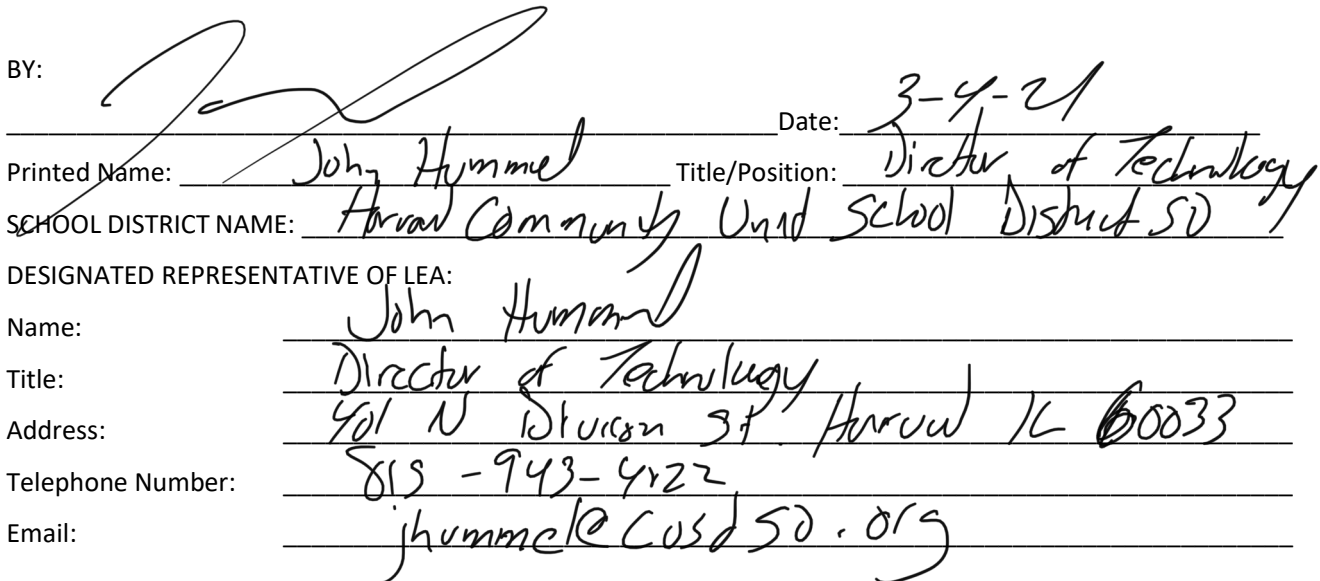 BY:
Date: 3-4-21
Printed Name: John Hummel Title/Position: Director of Technology
SCHOOL DISTRICT NAME: Harvard Community Unit School District 50
DESIGNATED REPRESENTATIVE OF LEA:
Name: John Hummel
Title: Director of Technology
Address: 401 N Division St. Harvard IL 60033
Telephone Number: 815-943-
Email: jhummel@cusd50.org